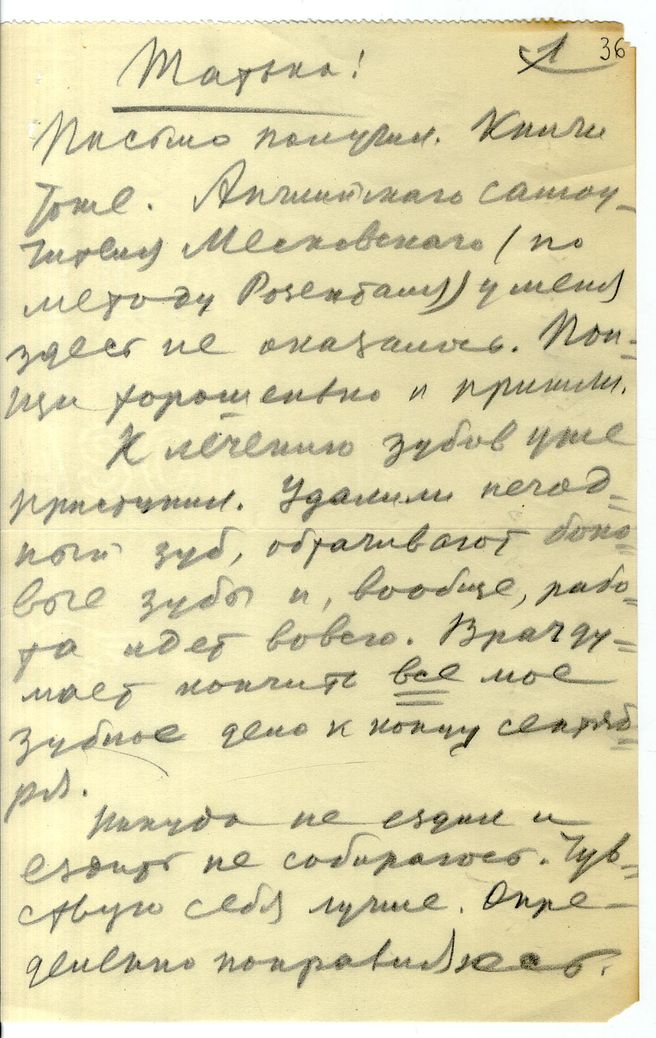 Татька!
1 36
Письмо получил. Книги
тоже. Английского самоу-
чителя Месковского (по
методу Розенталя) у меня
здесь не оказалось. Пои-
щи хорошенько и пришли.
К лечению зубов уже
приступил. Удалили негод-
ный зуб, обтачивают боко-
вые зубы и, вообще, рабо-
та идет вовсю. Врач ду-
мает кончить все мое
зубное дело к концу сентяб-
ря.
Никуда не ездил и
ездить не собираюсь. Чув-
ствую себя лучше. Опре-
деленно поправляюсь.